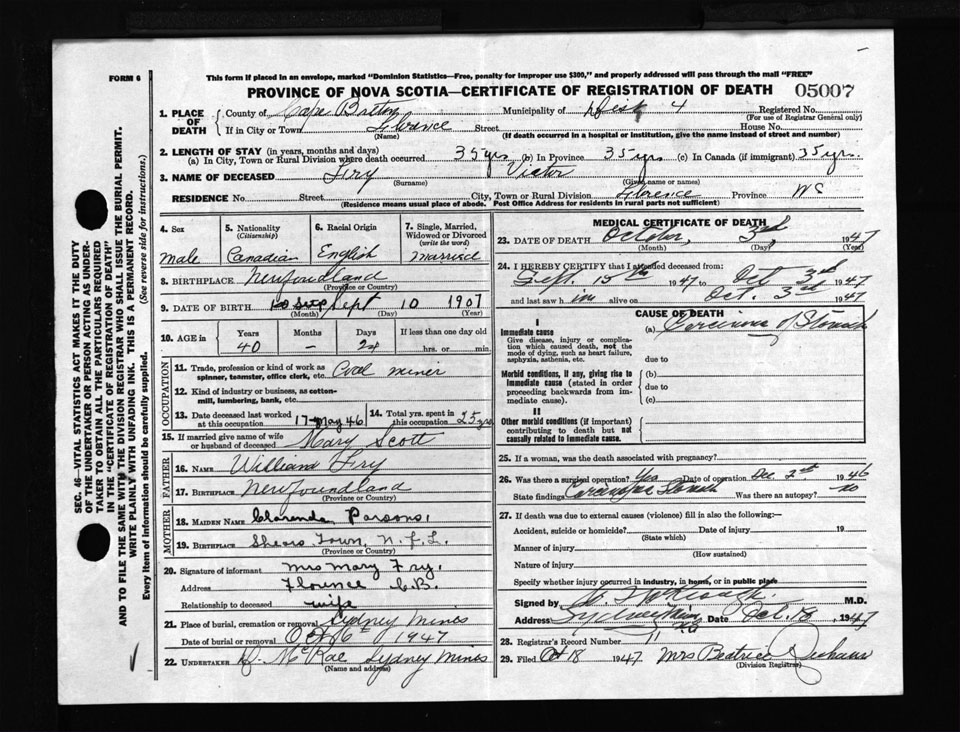 FORM 6
This form if placed in an envelope, marked "Dominion Statistics—Free, penalty for improper use $300," and properly addressed will pass through the mail "FREE"
PROVINCE OF NOVA SCOTIA—CERTIFICATE OF REGISTRATION OF DEATH 05007
1. PLACE OF DEATH
County of Cape Breton Municipality of 4 Registered No.
(For use of Registrar General only)
If in City or Town Florence Street House No.
(Name) (If death occurred in a hospital or institution, give the name instead of street and number)
2. LENGTH OF STAY (in years, months and days)
(a) In City, Town or Rural Division where death occurred 35 yrs (b) In Province 35 yrs (c) In Canada (if immigrant) 35 yrs
3. NAME OF DECEASED Fry Victor
(Surname) (Given name or names)
RESIDENCE No. Street City, Town or Rural Division Florence Province NS
(Residence means usual place of abode. Post Office Address for residents in rural parts not sufficient)
4. Sex
male
5. Nationality
(Citizenship)
Canadian
6. Racial Origin
English
7. Single, Married, Widowed or Divorced
(write the word)
Married
8. BIRTHPLACE Newfoundland
(Province or Country)
9. DATE OF BIRTH Sept 10 1907
(Month) (Day) (Year)
10. AGE in
Years 40
Months –
Days 24
If less than one day old
hrs. or min.
OCCUPATION
11. Trade, profession or kind of work as spinner, teamster, office clerk, etc. Coal miner
12. Kind of industry or business, as cotton-mill, lumbering, bank, etc.
13. Date deceased last worked at this occupation 17 May 46
14. Total yrs. spent in this occupation 25 yrs
15. If married give name of wife or husband of deceased Mary Scott
FATHER
16. NAME William Fry
17. BIRTHPLACE Newfoundland
(Province or Country)
MOTHER
18. MAIDEN NAME Clarenda Parsons.
19. BIRTHPLACE Shears Town, N.F.L.
(Province or Country)
20. Signature of informant Mrs Mary Fry.
Address Florence C.B.
Relationship to deceased wife
21. Place of burial, cremation or removal Sydney Mines
Date of burial or removal Oct 6th 1947
22. UNDERTAKER D. McRae Sydney Mines
(Name and address)
MEDICAL CERTIFICATE OF DEATH
23. DATE OF DEATH October, 3rd 1947
(Month) (Day) (Year)
24. I HEREBY CERTIFY that I attended deceased from:
Sept. 15th 1947 to Oct 3rd 1947
and last saw him alive on Oct. 3rd 1947
CAUSE OF DEATH
I
Immediate cause (a) Carcinoma of Stomach
Give disease, injury or complication which caused death, not the mode of dying, such as heart failure, asphyxia, asthenia, etc.
due to
Morbid conditions, if any, giving rise to immediate cause (stated in order proceeding backwards from immediate cause).
(b)
due to
(c)
II
Other morbid conditions (if important) contributing to death but not causally related to immediate cause.
25. If a woman, was the death associated with pregnancy?
26. Was there a surgical operation? Yes Date of operation Dec 2nd 1946
State findings Carcinoma Stomach Was there an autopsy? no
27. If death was due to external causes (violence) fill in also the following:—
Accident, suicide or homicide? Date of injury 19
(State which)
Manner of injury
(How sustained)
Nature of injury
Specify whether injury occurred in industry, in home, or in public place
Signed by M.D.
Address Sydney Mines NS Date Oct. 18, 1947
28. Registrar's Record Number 11
29. Filed Oct 18 1947 Mrs Beatrice
(Division Registrar)
SEC. 46—VITAL STATISTICS ACT MAKES IT THE DUTY
OF THE UNDERTAKER OR PERSON ACTING AS UNDERTAKER TO OBTAIN ALL THE PARTICULARS REQUIRED
IN THE "CERTIFICATE OF REGISTRATION OF DEATH"
AND TO FILE THE SAME WITH THE DIVISION REGISTRAR WHO SHALL ISSUE THE BURIAL PERMIT.
WRITE PLAINLY WITH UNFADING INK. THIS IS A PERMANENT RECORD.
Every item of information should be carefully supplied. (See reverse side for instructions.)